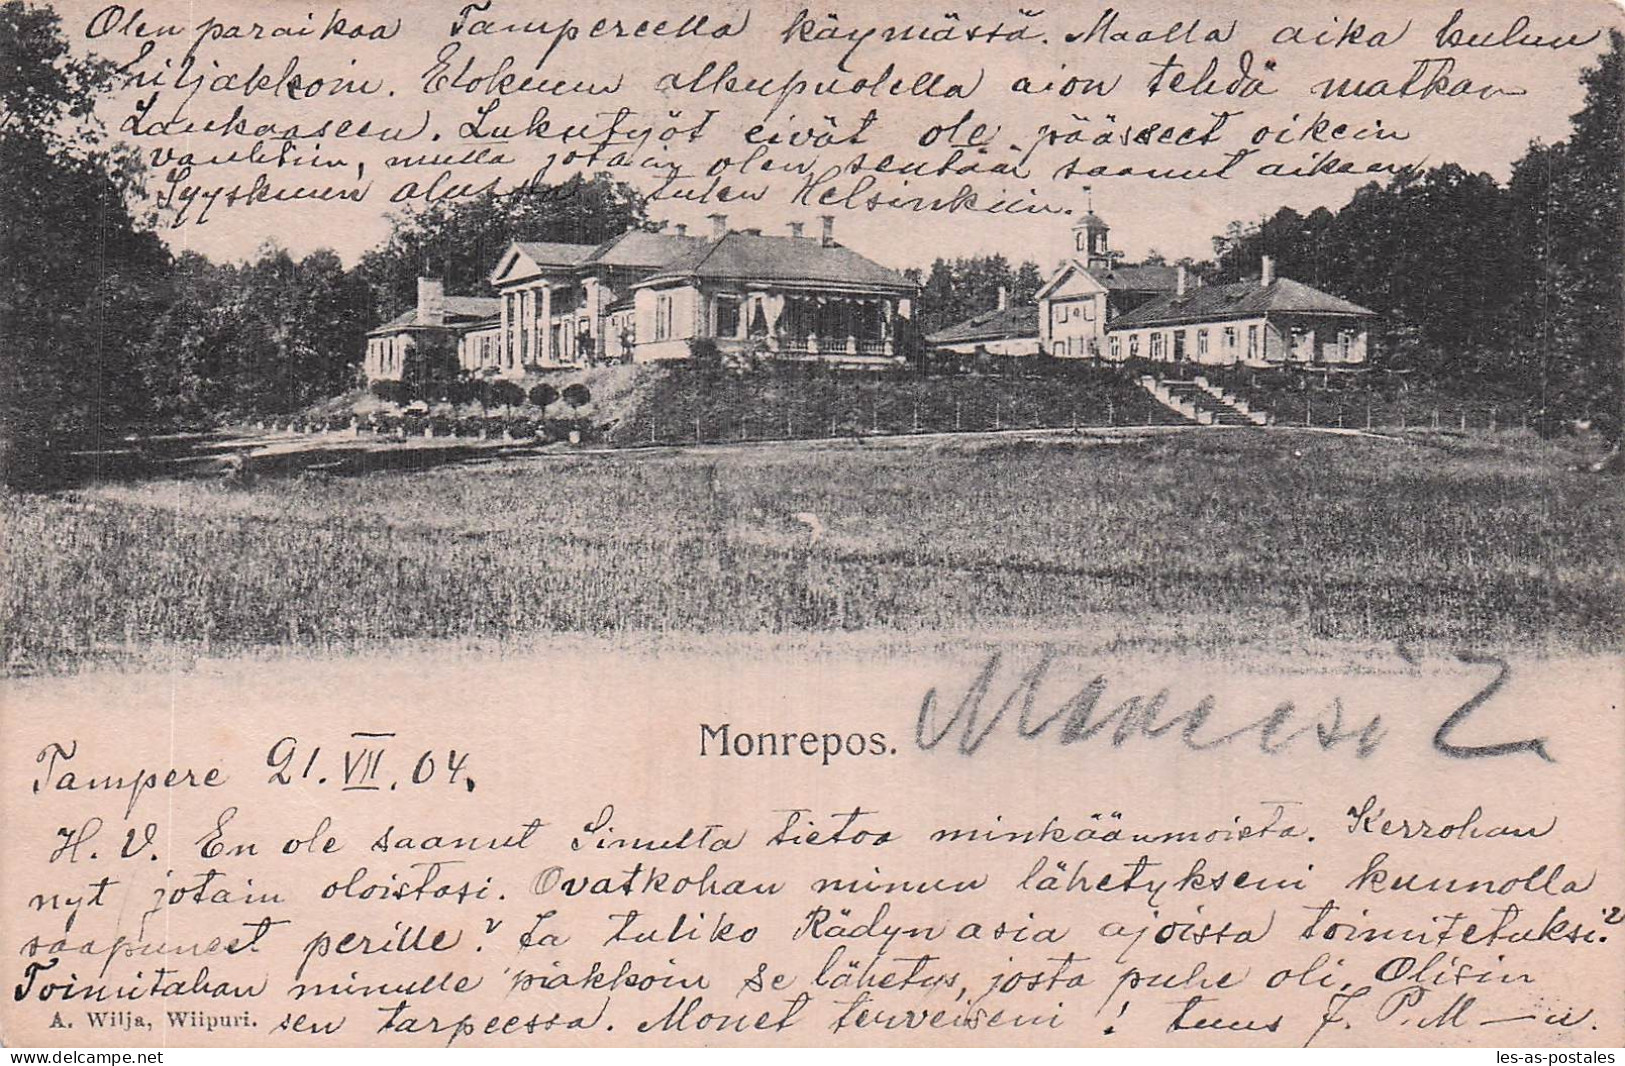 Olen paraikaa Tampereella käymässä. Maalla aika kuluu
hiljakkoin. Elokuun alkupuolella aion tehdä matkan
Laukaaseen. Lukutyöt eivät ole päässeet oikein
vauhtiin, mutta jotain olen sentään saanut aikaan.
Syyskuun alussa tulen Helsinkiin.
Monrepos.
Tampere 21.VII.04.
H. V. En ole saanut Sinulta tietoa minkäänmoista. Kerrohan
nyt jotain oloistasi. Ovatkohan minun lähetykseni kunnolla
saapuneet perille? Ja tuliko Rädyn asia ajoissa toimitetuksi?
Toimitahan minulle piakkoin se lähetys, josta puhe oli. Olisin
A. Wilja, Wiipuri. sen tarpeessa. Monet terveiseni! tuus J. P. M—n.
les-as-postales